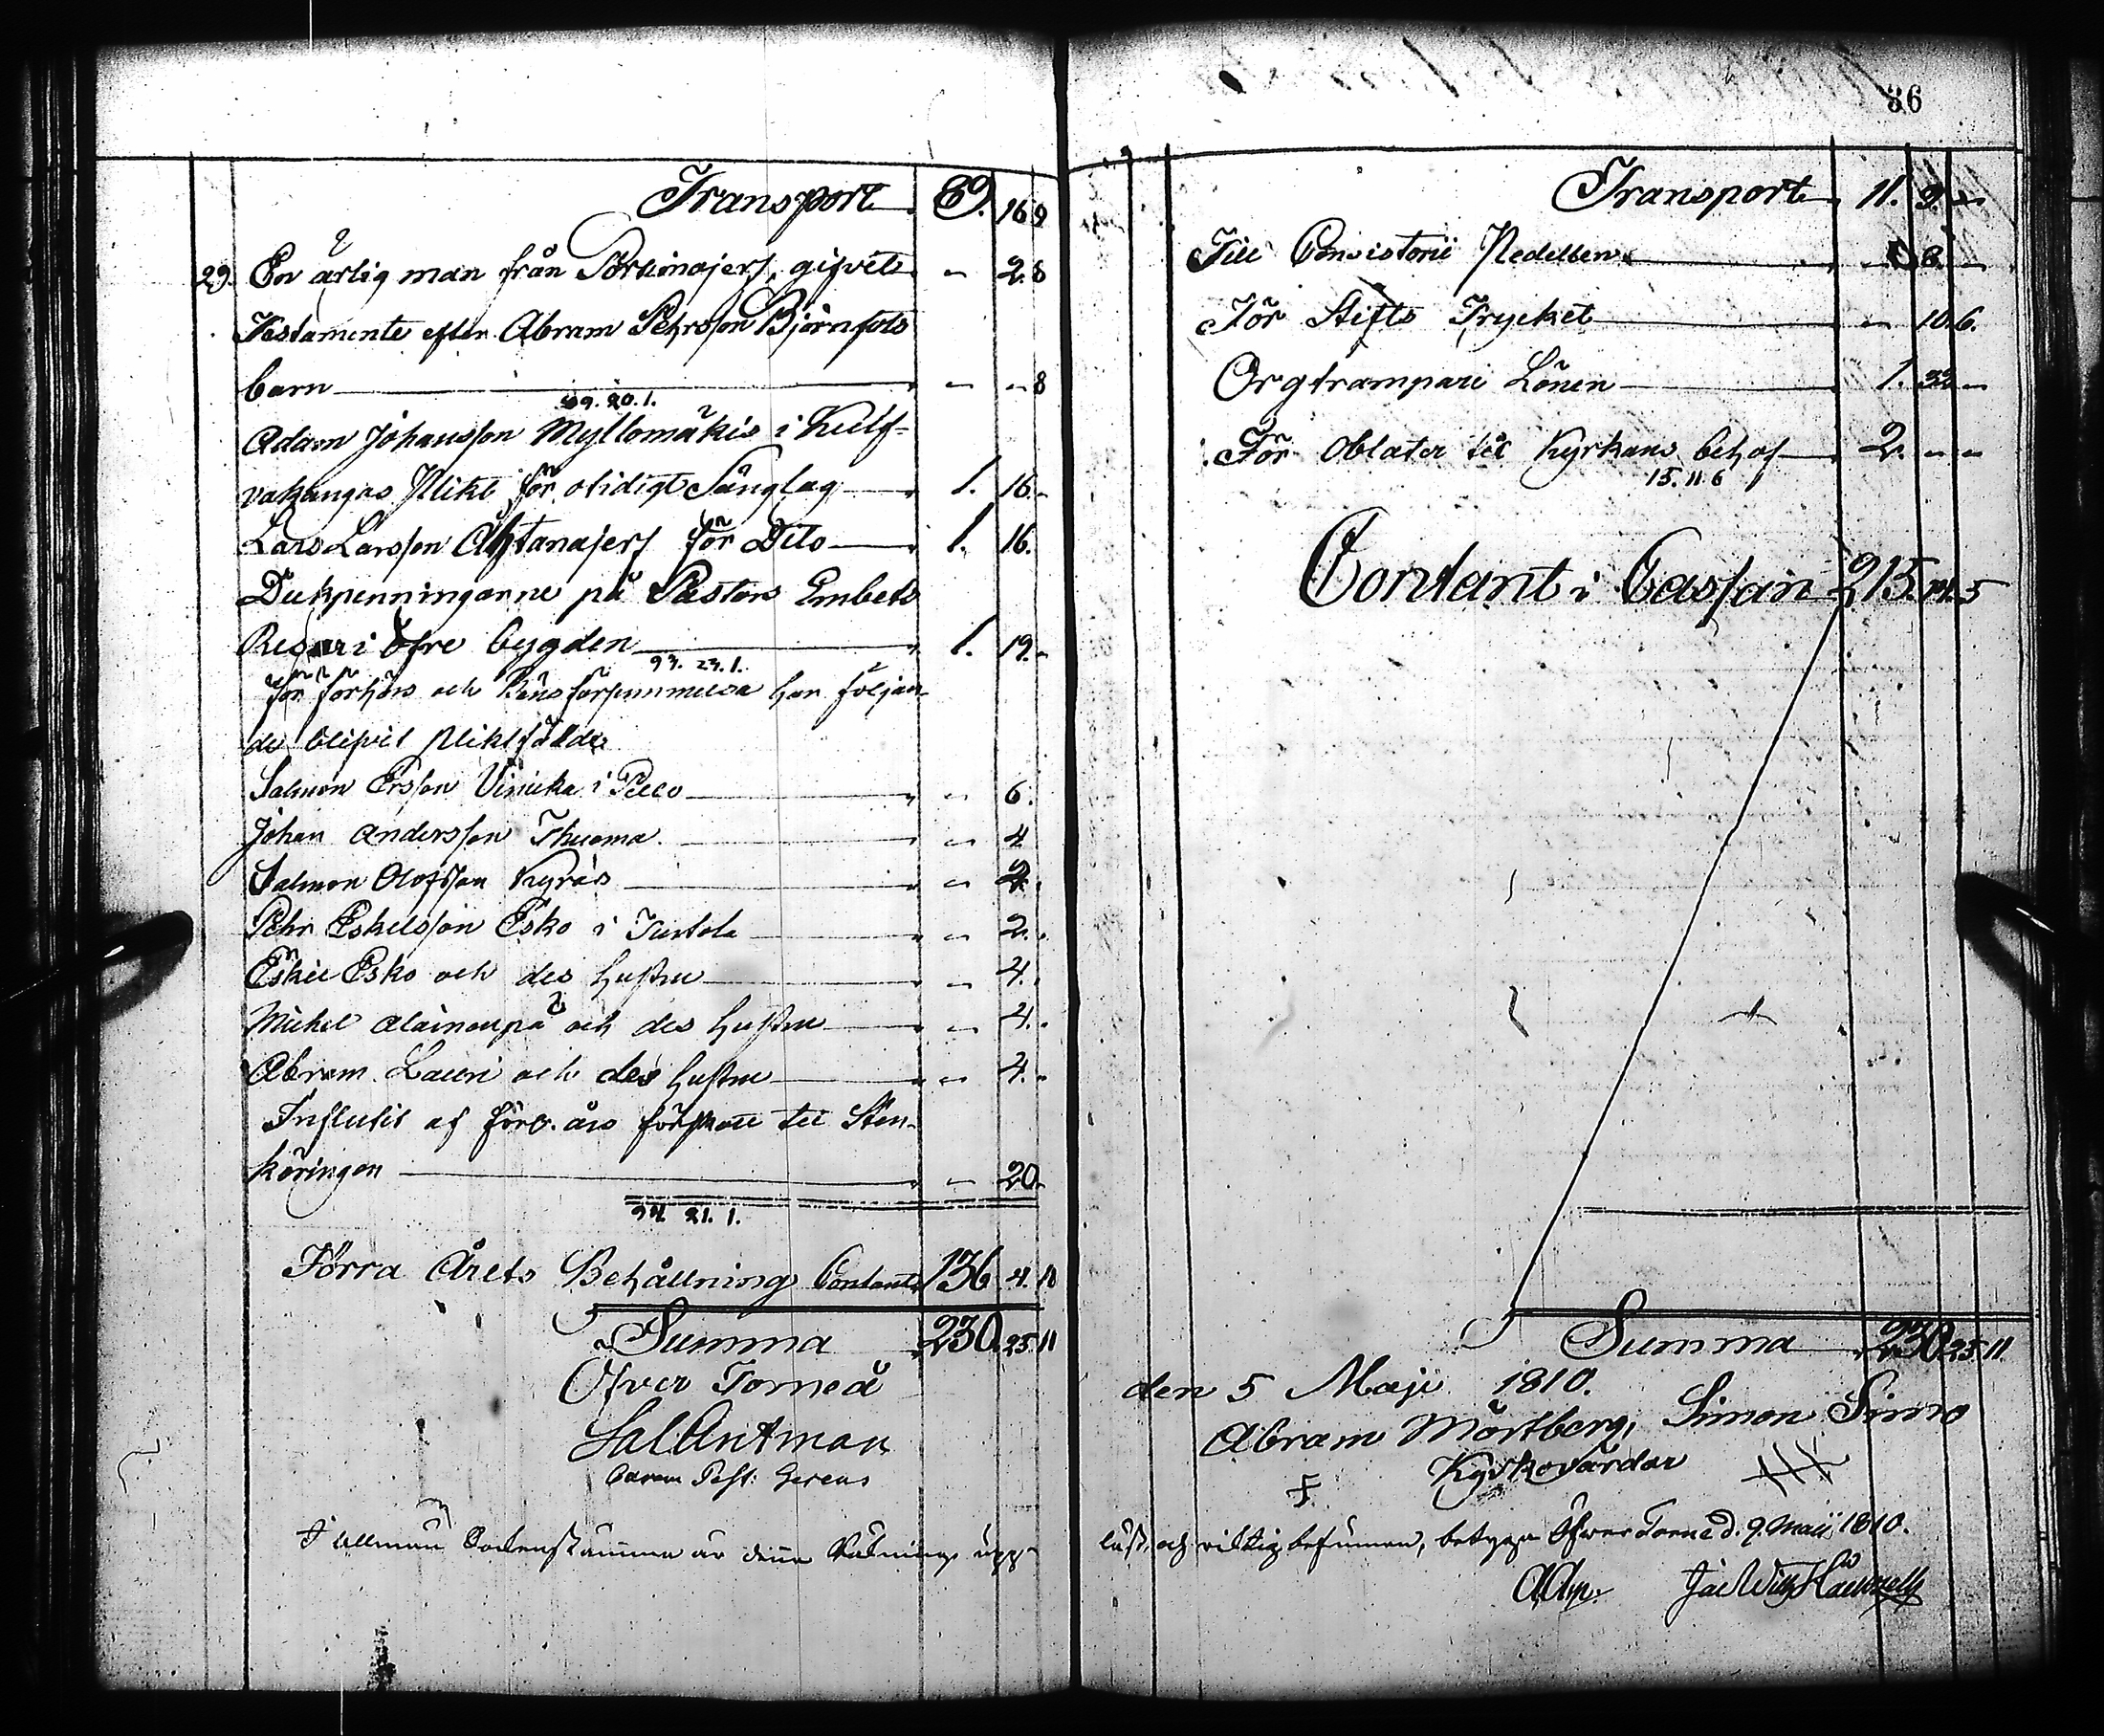 Transport 89. 16 9
29. En ärlig man från Porkinajerf gifvit - 2. 8
Testamente efter Abram Pehrsson Björnfots
barn - - 8
89. 20. 1.
Adam Johansson Myllomäkis i Kulf-
vakangas Plikt för otidigt Sänglag 1. 16. -
Lars Larsson Ahtanajerf för Dito 1. 16.
Dukpenningarne på Pastors Embets
Resor i öfre bygden 1. 19. -
93. 23. 1.
för förhörs och försummelse har följan-
de blifvit Pliktfälde
Salmon Ersson i Pello - 6.
Johan Andersson Thuoma - 4
Salmon Olofsson Kyrös - 2.
Pehr Eskelsson Esko i Turtola - 2.
Eskil Esko och des hustru - 4.
Michel Alainenpä och des hustru - 4.
Abram Lauri och des hustru - 4. -
Influtit af förl. års förskott til Sten-
köringen - 20 -
94 21. 1.
Förra Årets Behållning Contant 136 4. 10
Summa 230. 25 11
Öfver Torneå
Sal Antman
Past: Gerens
I allmän Sockenstämma är denne Räkning upp-
36
Transport 11. 9. -
Till Consistorii Nedelben - 8. -
För Stifts Trycket - 10. 6.
Orgtrampare Lönen 1. 32 -
För Oblater til Kyrkans behof 2. - -
15. 11 6
Contant i Cassan 215. 14. 5
Summa 230. 25. 11.
den 5 Maji 1810.
Abram Mörtberg, Simon Simo
Kyrkovärdar
läst, och riktig befunnen, betygar Öfver Torneå d. 9. Maii 1810.